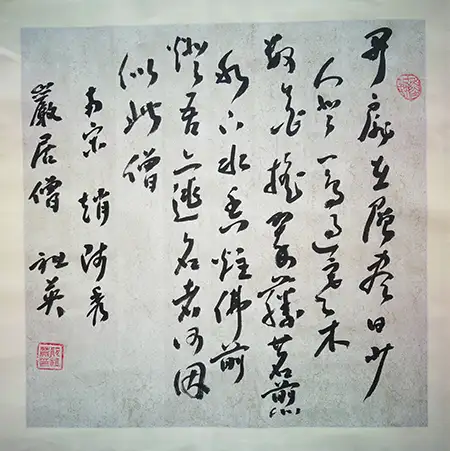 開扉在層盡日少
人登一鳥過寒木
數花搖翠藤茗煎
氷下水香炷佛前
燈吾亦逃名者何因
似此僧
南宋 趙師秀
巖居僧 祖英